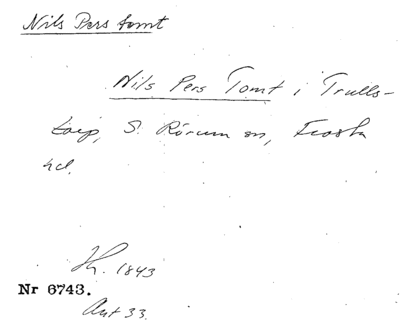 Nils Pers tomt
Nils Pers Tomt i Trulls-
torp, S. Rörum sn, Frosta
hd.
Th. 1843
Nr 6743.
Ant 33.